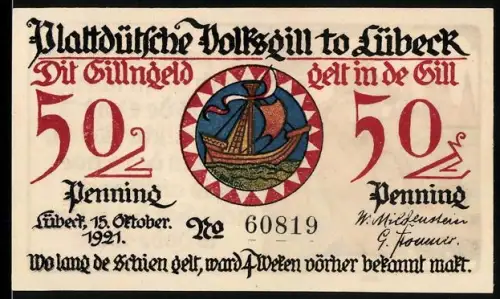 Plattdütsche Volksgill to Lübeck
Dit Gillngeld gelt in de Gill
50 50
Penning Penning
Lübeck, 15. Oktober. 1921.
No 60819
W. Mildenstein
Wo lang de Schien gelt, ward 4 Weken vörher bekannt makt.